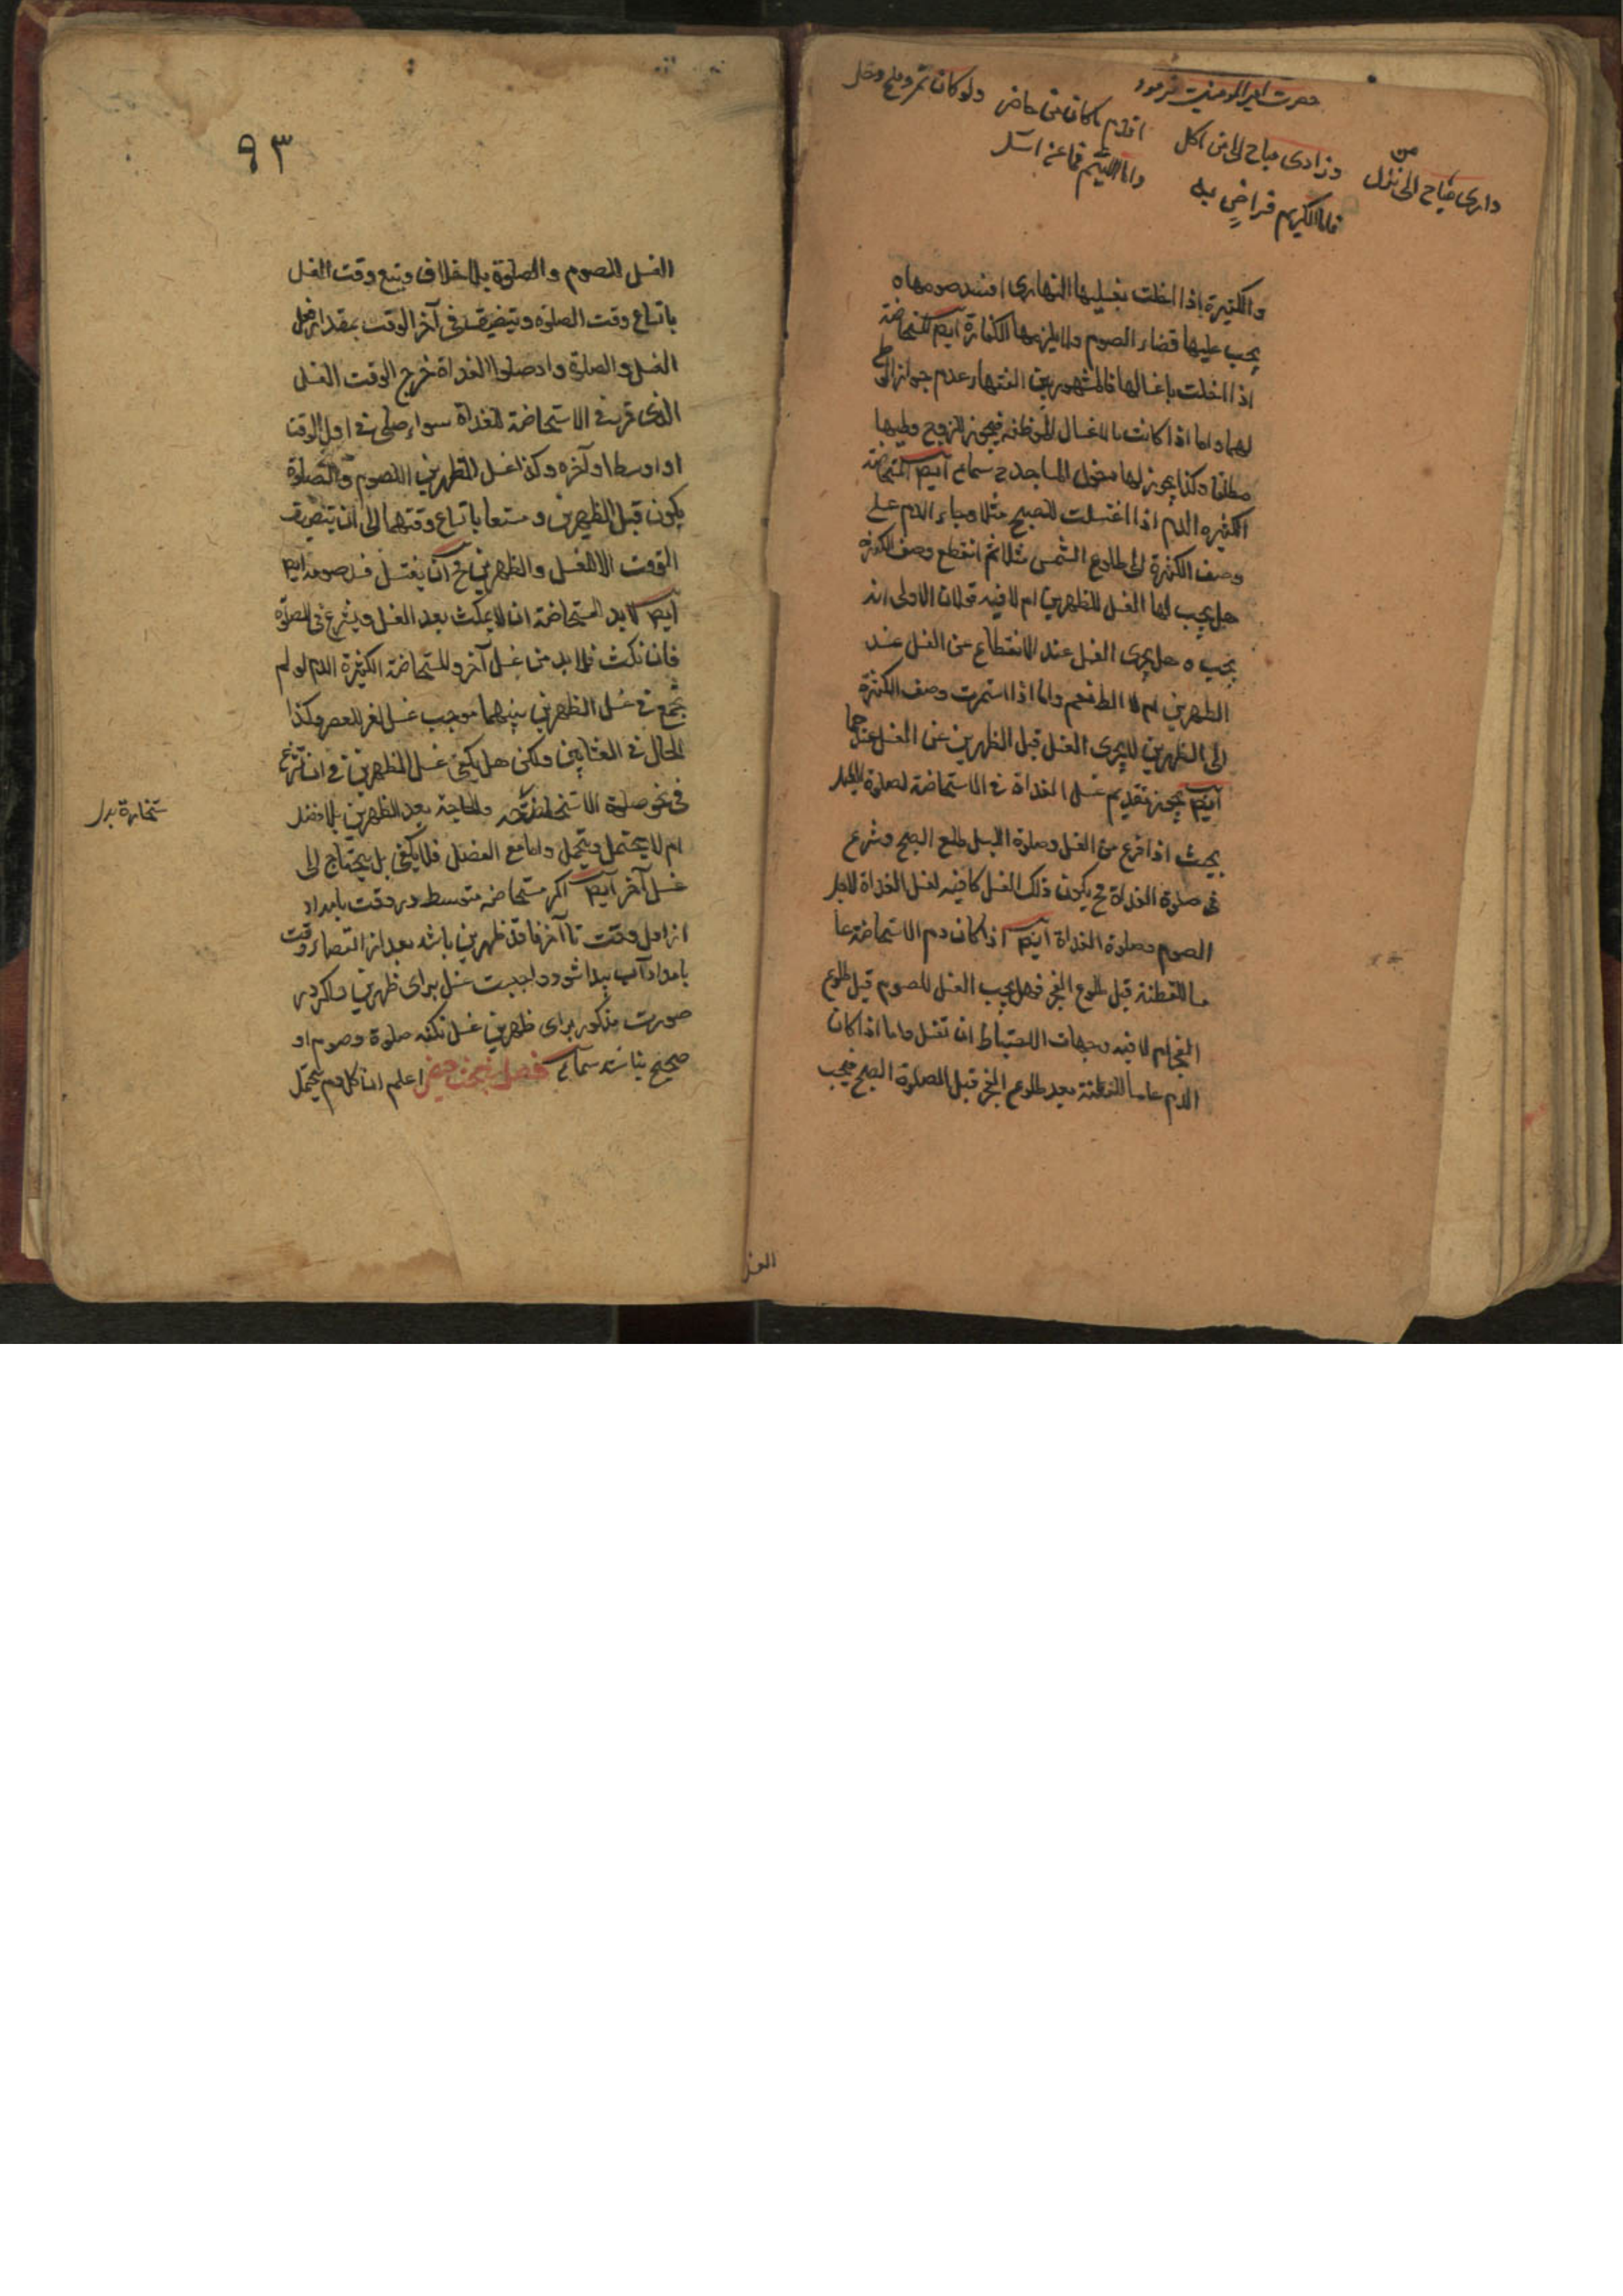 حضرت امیرالمومنین فرمود
داری مباح الی من نزل
وزادی مباح الی من اکل
اقدم ماکان منی حاضر
ولو کان تمر وملح وخل
فاما الکریم فراضٍ به
واما اللئیم فما عنه اسئل
والکثیرة اذا اخلت بغسلیها النهاری افسد صومها ه
یجب علیها قضاء الصوم ولا یلزمها الکفارة ایضا المستحاضة
اذا اخلت باغسالها فالمشهور بین الفقهاء عدم جواز الوطی
لها واما اذا کانت بالاغسال الموظفه فیجوز للزوج وطیها
مطلقا وکذا یجوز لها دخول المساجد ایضا المستحاضة
الکثیره الدم اذا اغتسلت للصبح مثلا وجاء الدم علی
وصف الکثرة الی طلوع الشمس مثلا ثم انقطع وصف الکثره
هل یجب لها الغسل للظهرین ام لا فیه قولان الاولی انه
یجب ه هل یجری الغسل عند الانقطاع عن الغسل عند
الظهرین ام لا الط نعم واما اذا استمرت وصف الکثرة
الی الظهرین لا یجری الغسل قبل الظهرین عن الغسل عندهما
ایضا یجوز تقدیم غسل الغداة فی الاستحاضة لصلوة اللیل
بحیث اذا فرغ من الغسل وصلوة اللیل طلع الصبح وشرع
فی صلوة الغداة ح یکون ذلک الغسل کافیه لغسل الغداة لاجل
الصوم وصلوة الغداة ایضا اذا کان دم الاستحاضة عا
مسا للقطنة قبل طلوع الفجر فهل یجب الغسل للصوم قبل طلوع
الفجر ام لا فیه وجهان الاحتیاط ان تغسل واما اذا کان
الدم عامسا للقطنة بعد طلوع الفجر قبل الصلوة الصبح فیجب
الغسل
۹۳
الغسل للصوم والصلوة بلا خلاف ویتسع وقت الغسل
باتساع وقت الصلوة ویتضیق فی آخر الوقت بمقدار فعل
الغسل والصلوة واذا صلوا الغداة خرج الوقت الغسل
الذی قرن فی الاستحاضة للغداة سواء صلی فی اول الوقت
او اوسط او آخره وکذا غسل الظهرین للصوم والصلوة
یکون قبل الظهرین ومتسعا باتساع وقتهما الی ان یتضیق
الوقت الا للغسل والظهرین ح ان یغتسل فسد صومه ایضا
ایضا لابد للمستحاضة ان لا یمکث بعد الغسل ویشرع فی الصلوة
فان نکث فلابد من غسل آخر وللمستحاضة الکثیرة الدم لو لم
تجمع فی غسل الظهرین بینهما موجب غسل اخر للعصر وکذا
الحال فی العشایین ولکن هل یکفی غسل الظهرین فی ان تشرع
فی نحو صلوة الاستخارة والحاجة بعد الظهرین بلا فصل
ام لا یحتمل ویحتمل واما مع الفصل فلا یکفی بل یحتاج الی
غسل آخر ایضا اکر مستحاضه متوسطه در وقت بامداد
از اول وقت تا آخر فاقد ظهرین باشد بعد از انقضاء وقت
بامداد آب پیدا شود واجبست غسل برای ظهرین واکر در
صورت مذکور برای ظهرین غسل نکند صلوة وصوم او
صحیح نباشد فصل بحث حیض اعلم ان کل دم یحتمل
ستخارة بدل